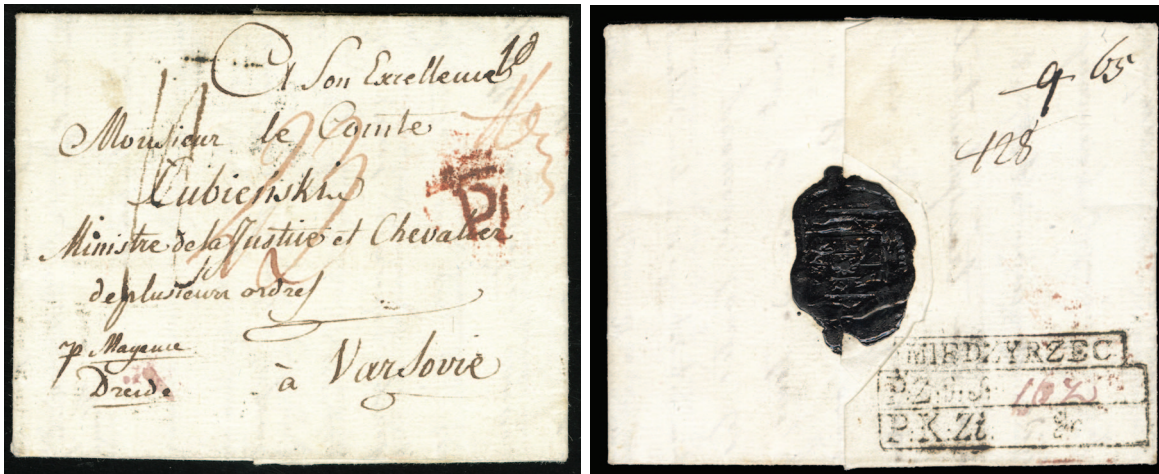 A Son Excellence
Monsieur le Comte
Łubieński
Ministre de la Justice et Chevalier
de plusieurs ordres
p Mayence
Dresde
à Varsovie
P
9 65
428
MIRDZYRZEC
P.K.Zł